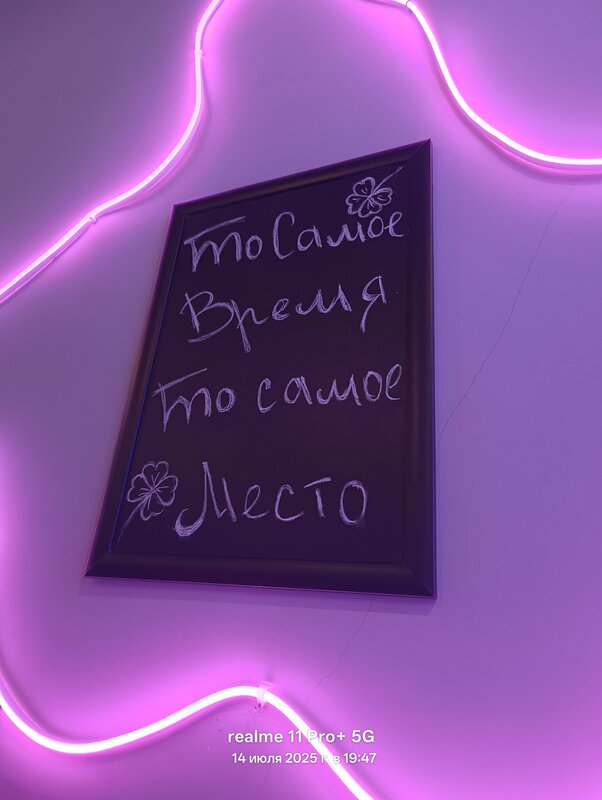 То Самое
Время
то самое
Место
realme 11 Pro+ 5G
14 июля 2025 г. в 19:47